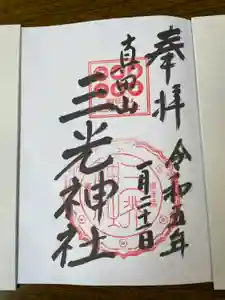 奉拝
令和五年
一月二十一日
真田山
三光神社